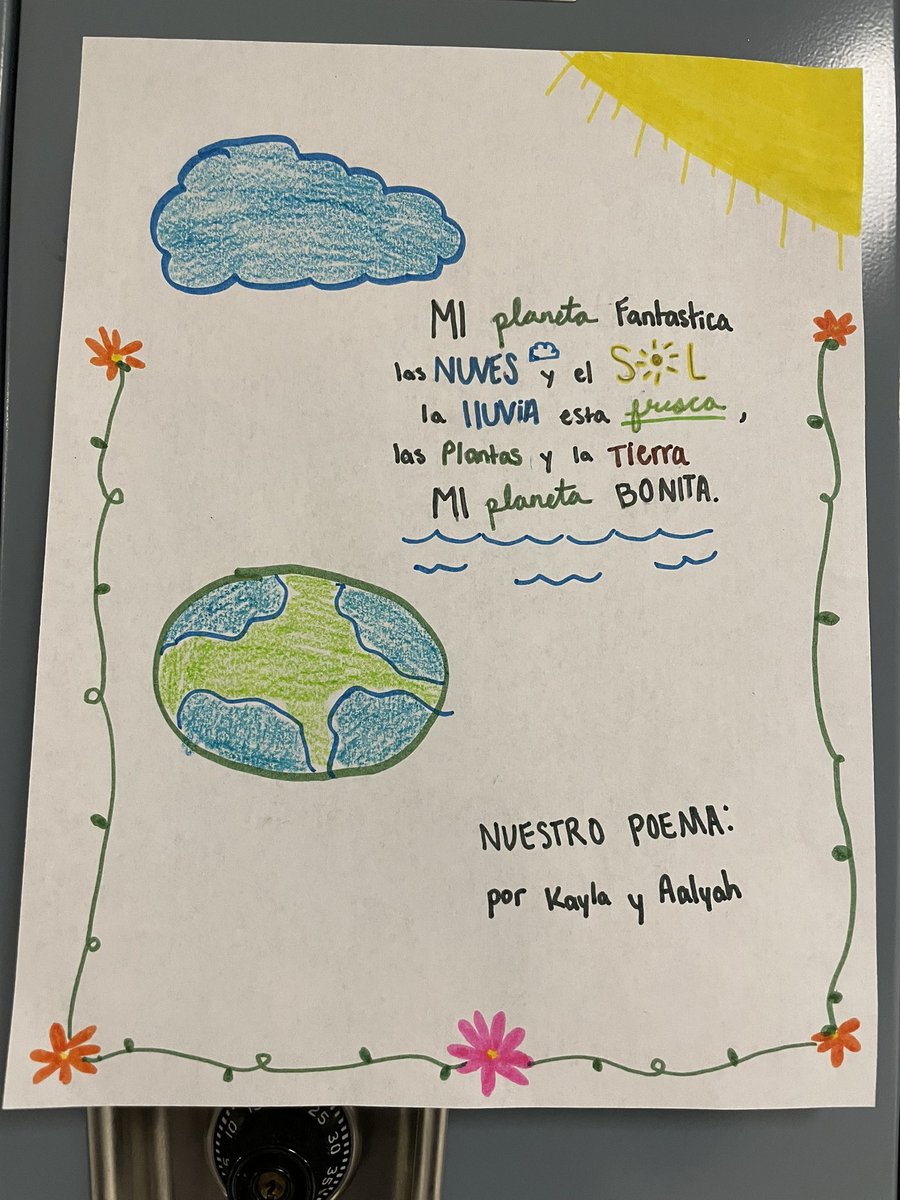 MI planeta Fantastica
las NUVES y el SOL
la lluvia esta fresca,
las Plantas y la Tierra
MI planeta BONITA.
NUESTRO POEMA:
por Kayla y Aalyah
10
25
30
35